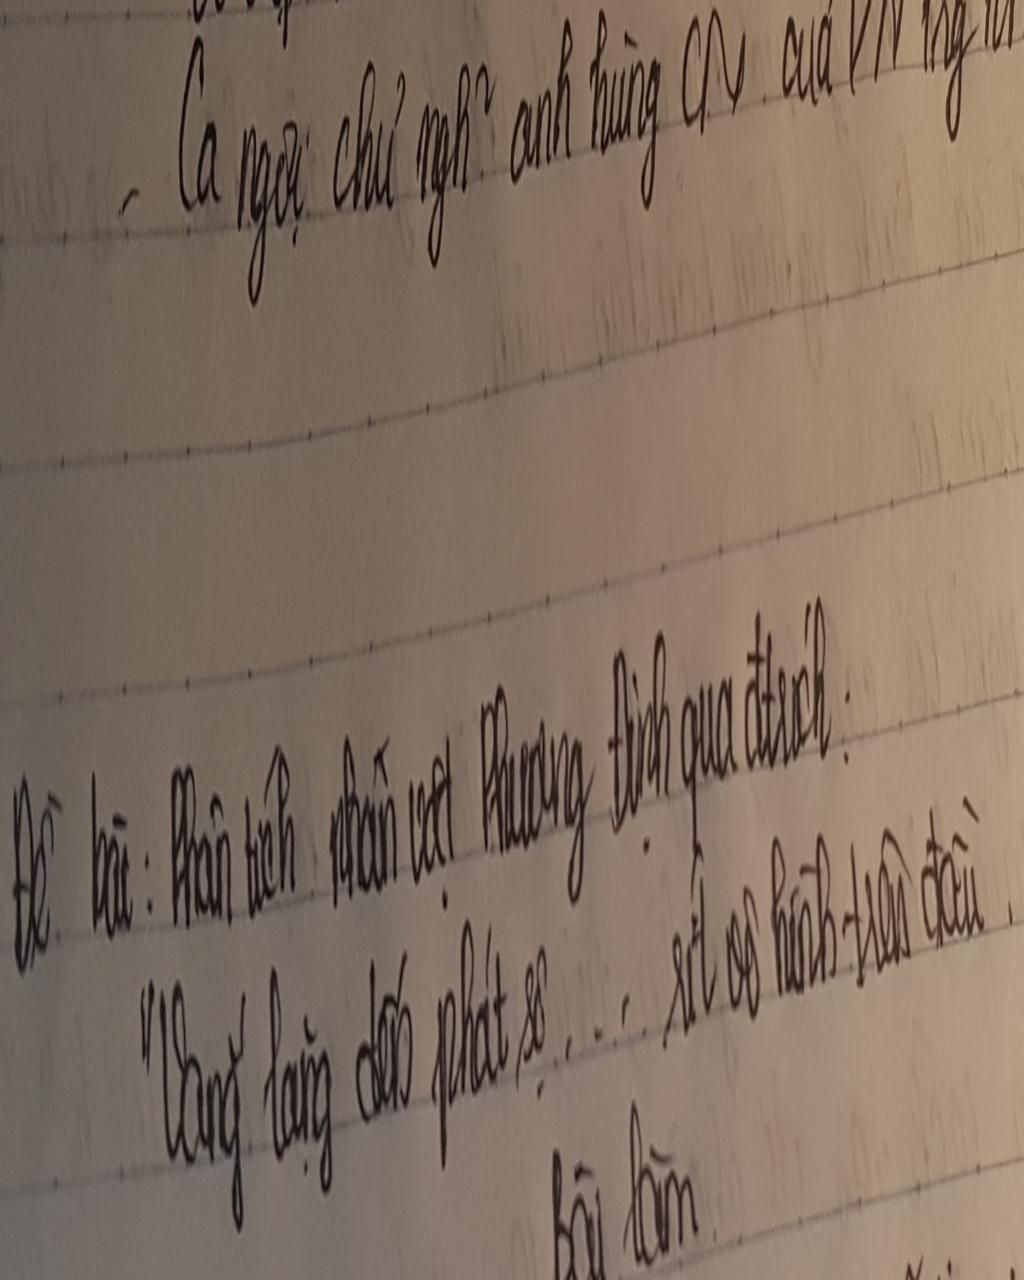 - Ca ngợi chủ nghĩ anh hùng CN của VN trg
Đề bài: Phân tích nhân vật Phương Định qua đtrích:
"Vắng lặng đến phát sợ... sắt vô hình trên đầu.
Bài làm